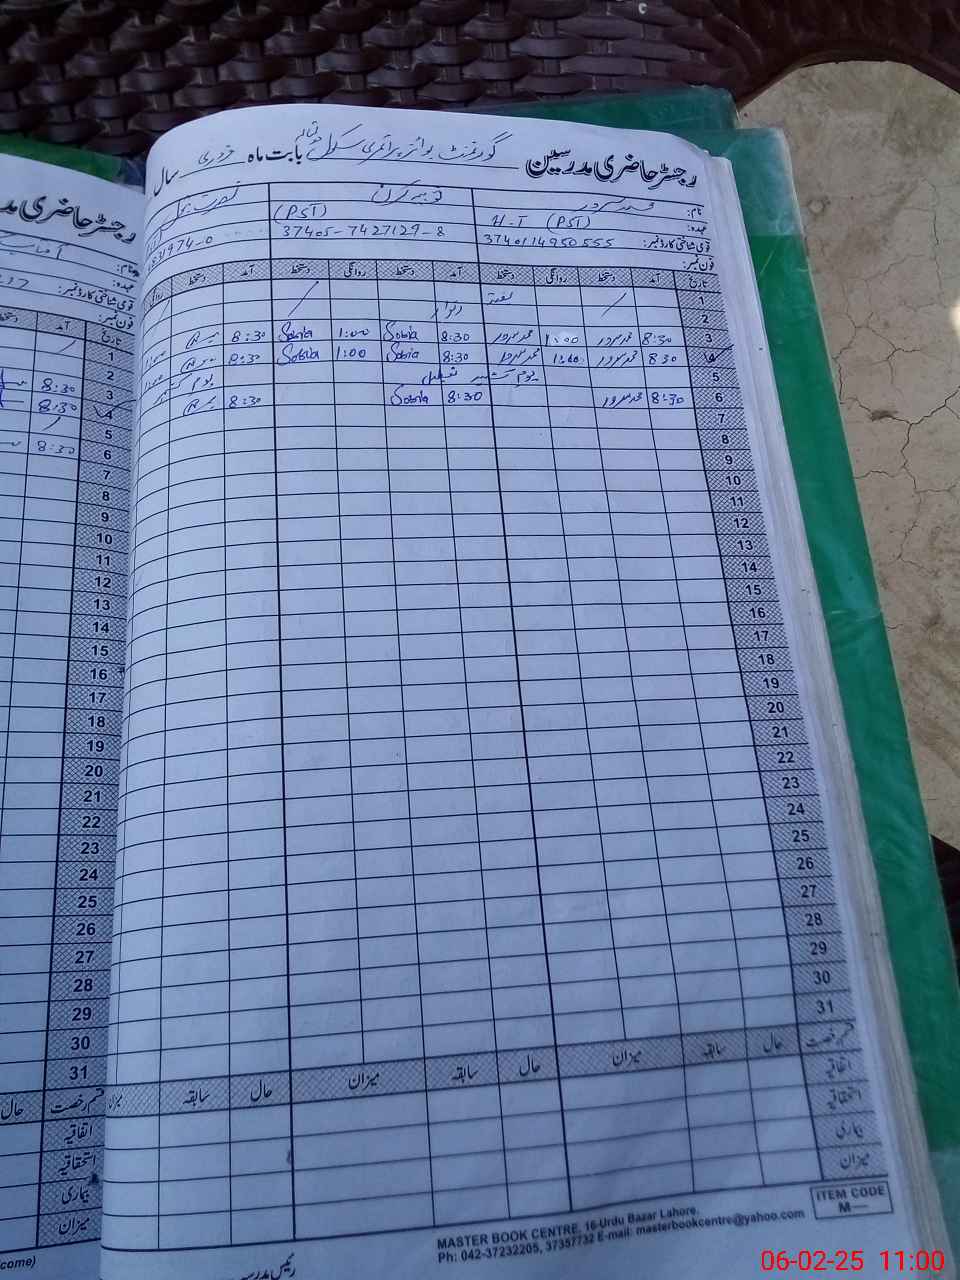 رجسٹر حاضری مدرسین گورنمنٹ بوائز پرائمری سکول بابت ماہ فروری سال
نام: محمد سرور
عہدہ: H-T (PST) (PST)
قومی شناختی کارڈ نمبر: 3740114950555 37405-7427129-8
فون نمبر:
تاریخ آمد دستخط روانگی دستخط آمد دستخط روانگی دستخط آمد دستخط روانگی
1 ہفتہ
2 اتوار
3 8:30 محمد سرور 1:00 محمد سرور 8:30 Sobia 1:00 Sobia 8:30 1:00
4 8:30 محمد سرور 1:00 محمد سرور 8:30 Sobia 1:00 Sobia 8:30 1:00
5 یوم کشمیر تعطیل یوم کشمیر
6 8:30 محمد سرور 8:30 Sobia 8:30
7
8
9
10
11
12
13
14
15
16
17
18
19
20
21
22
23
24
25
26
27
28
29
30
31
قسم رخصت حال سابقہ میزان حال سابقہ میزان حال سابقہ میزان
اتفاقیہ
استحقاقیہ
بیماری
میزان
ITEM CODE
M—
MASTER BOOK CENTRE, 16-Urdu Bazar Lahore.
Ph: 042-37232205, 37357732 E-mail: masterbookcentre@yahoo.com
رجسٹر حاضری
نام:
عہدہ:
قومی شناختی کارڈ نمبر:
فون نمبر:
تاریخ آمد
1
2
3 8:30
4 8:30
5
6 8:30
7
8
9
10
11
12
13
14
15
16
17
18
19
20
21
22
23
24
25
26
27
28
29
30
31
قسم رخصت حال
اتفاقیہ
استحقاقیہ
بیماری
میزان
06-02-25 11:00